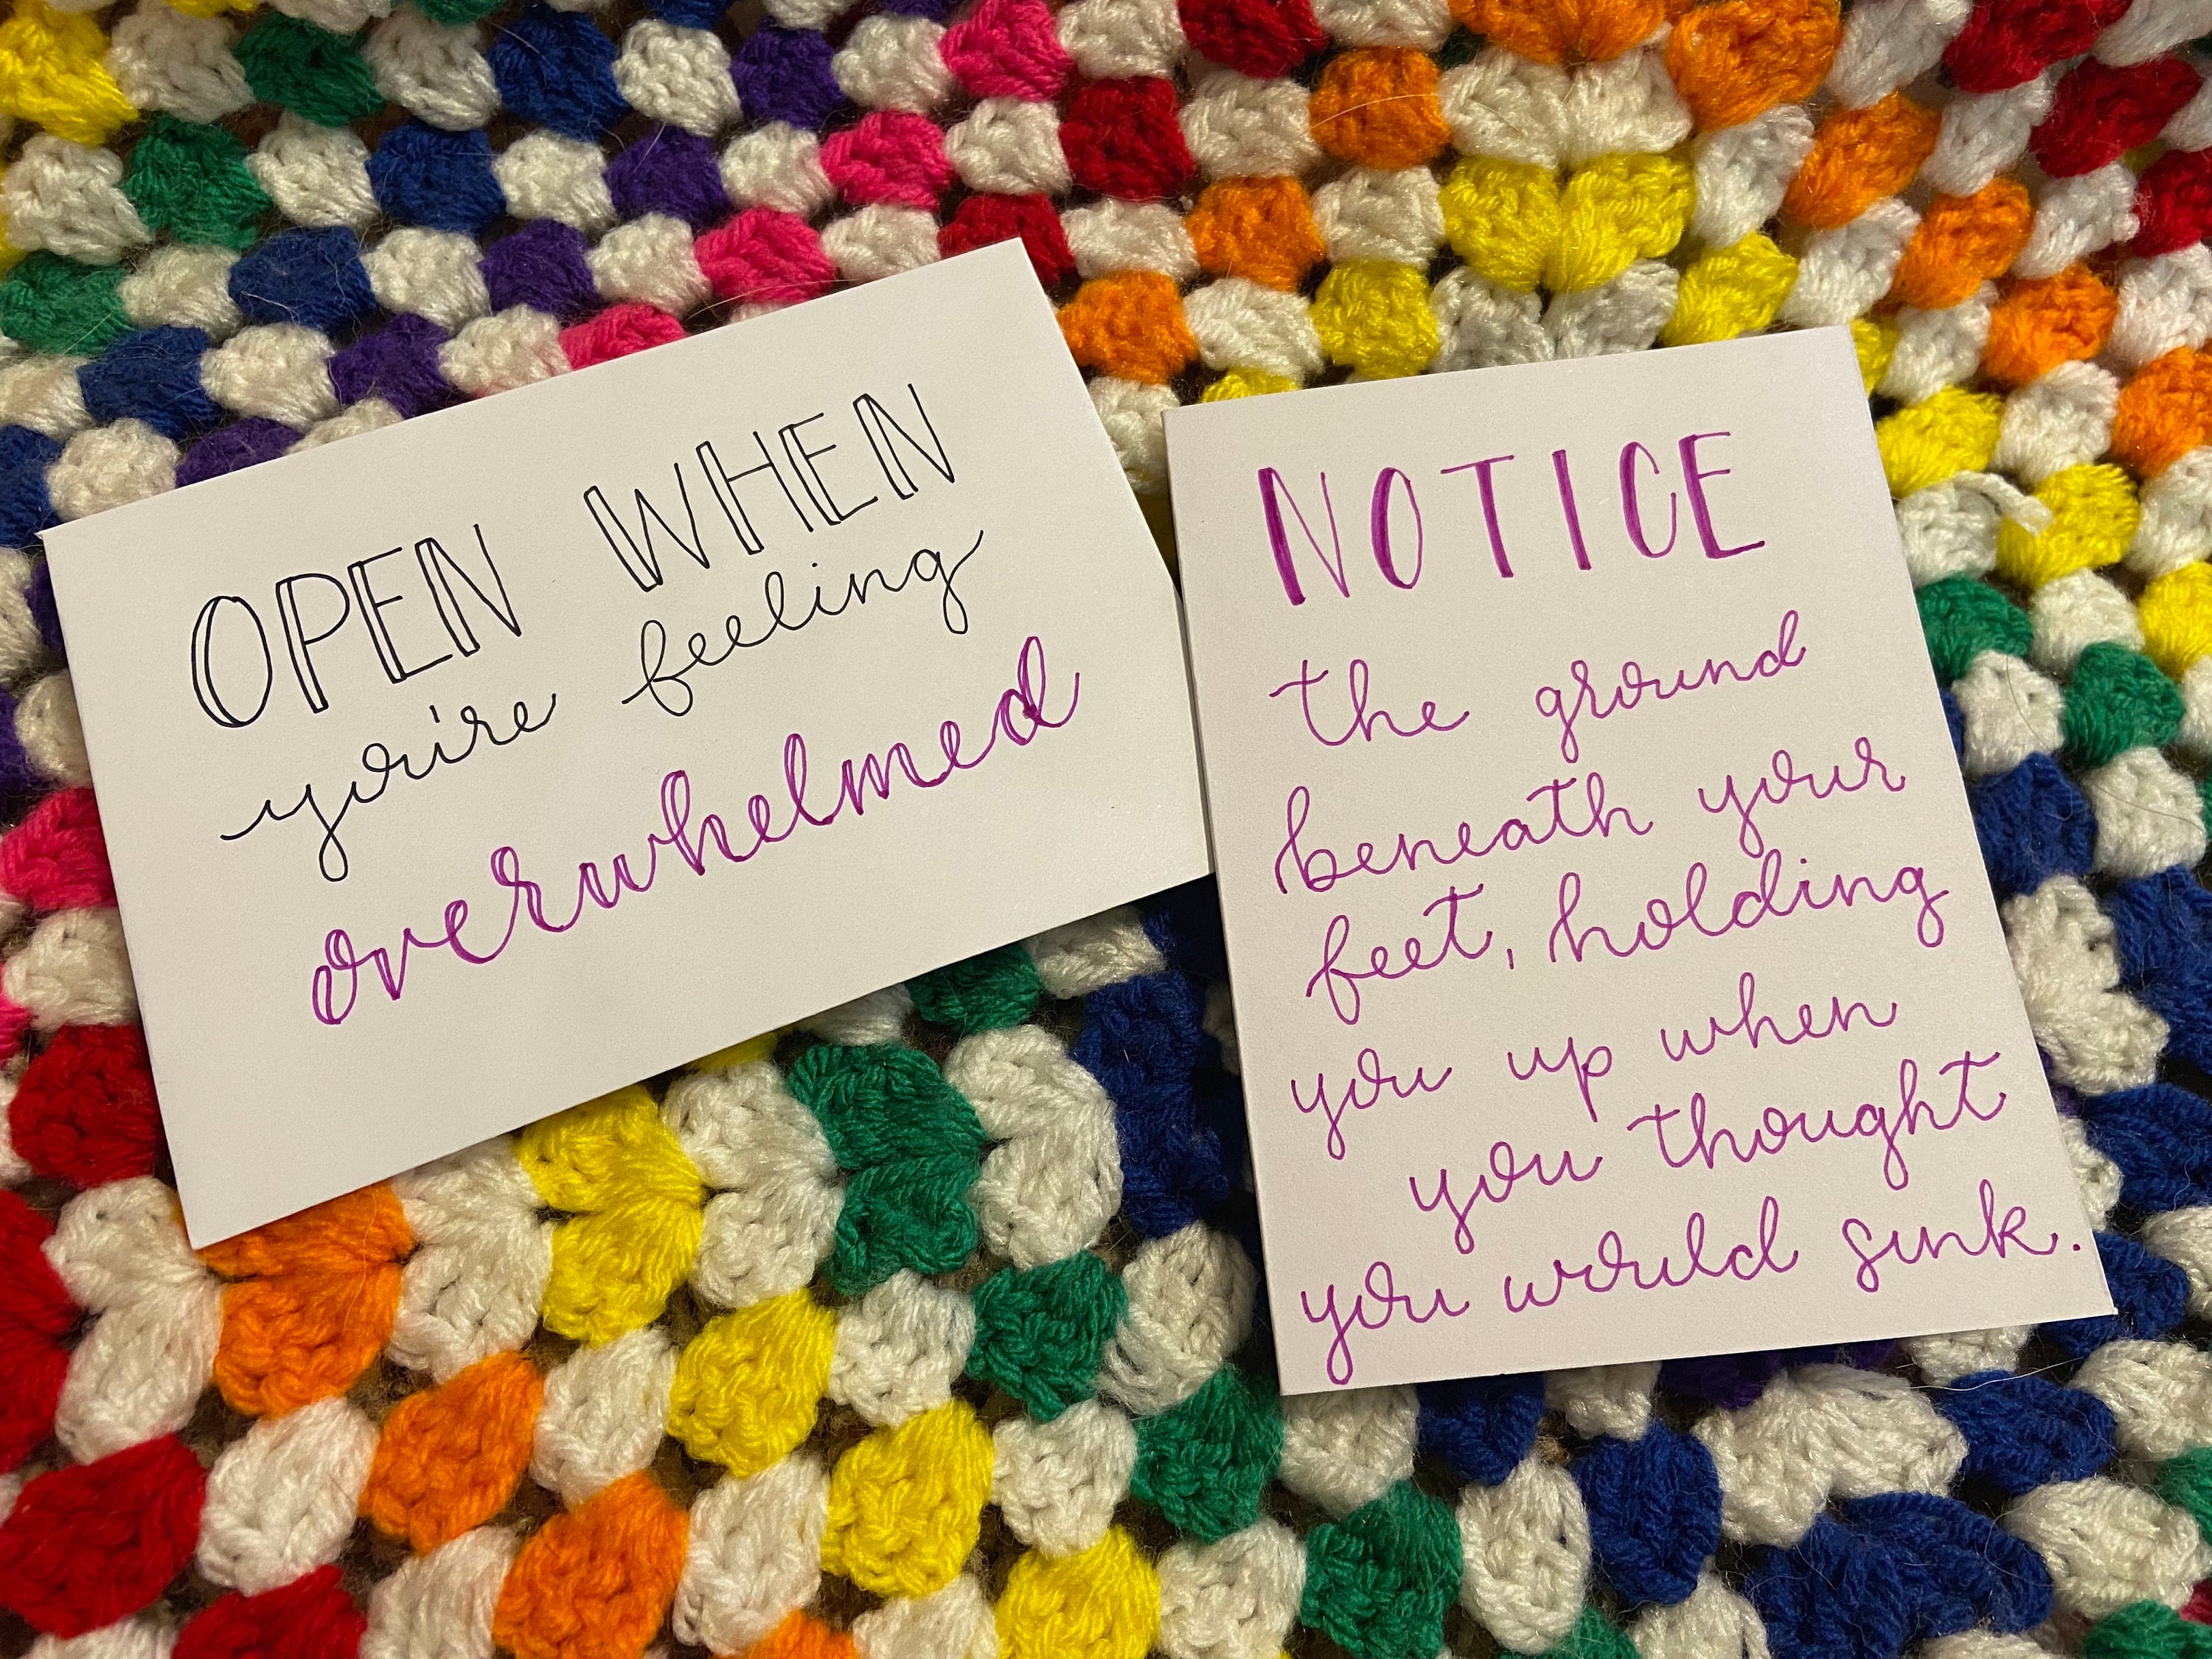 OPEN WHEN
you're feeling
overwhelmed
NOTICE
the ground
beneath your
feet, holding
you up when
you thought
you would sink.